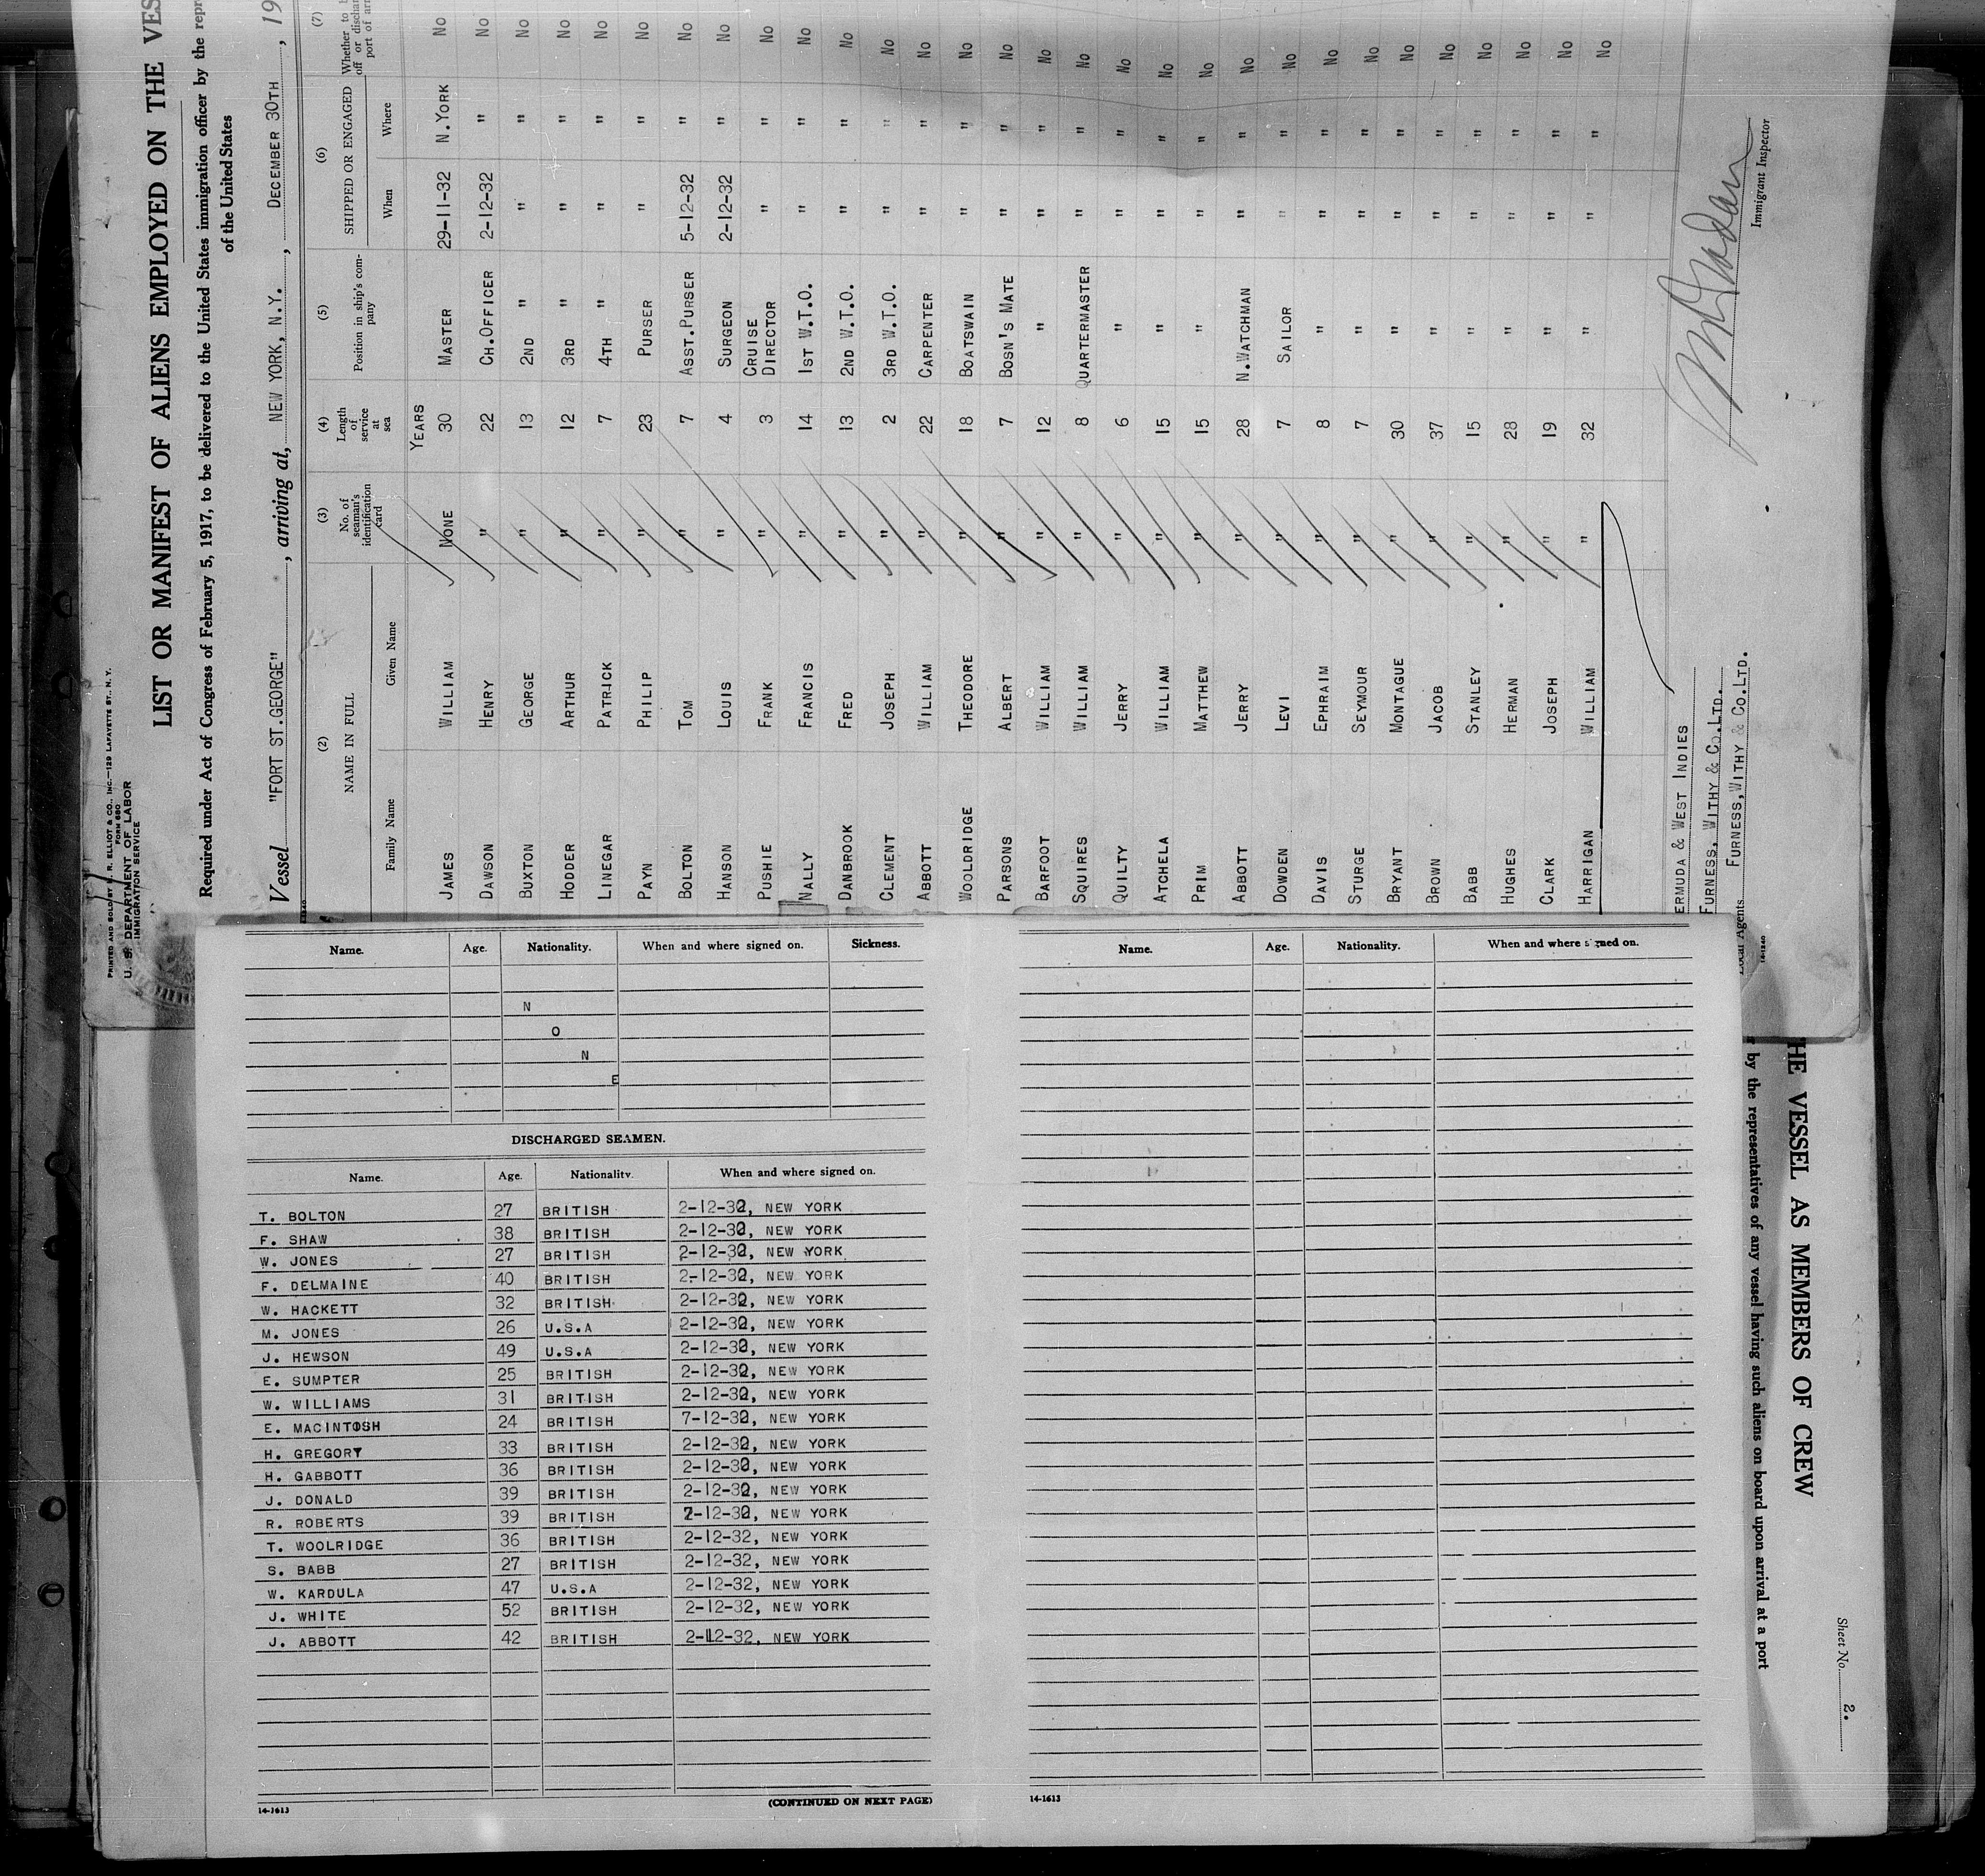 PRINTED AND SOLD BY R. R. ELLIOT & CO., INC.—129 LAFAYETTE ST., N. Y.
FORM 680
U. S. DEPARTMENT OF LABOR
IMMIGRATION SERVICE
LIST OR MANIFEST OF ALIENS EMPLOYED ON THE VES
Required under Act of Congress of February 5, 1917, to be delivered to the United States immigration officer by the repr
of the United States
Vessel "FORT ST.GEORGE", arriving at, NEW YORK, N.Y., DECEMBER 30TH, 19
(2) (3) (4) (5) (6) (7)
NAME IN FULL No. of seaman's identification card Length of service at sea Position in ship's company SHIPPED OR ENGAGED Whether to
off or dischar
port of arr
Family Name Given Name When Where
YEARS
JAMES WILLIAM NONE 30 MASTER 29-11-32 N.YORK No
DAWSON HENRY " 22 CH.OFFICER 2-12-32 " No
BUXTON GEORGE " 13 2ND " " " No
HODDER ARTHUR " 12 3RD " " " No
LINEGAR PATRICK " 7 4TH " " " No
PAYN PHILIP " 23 PURSER " " No
BOLTON TOM " 7 ASST.PURSER 5-12-32 " No
HANSON LOUIS " 4 SURGEON 2-12-32 " No
PUSHIE FRANK " 3 CRUISE DIRECTOR " " No
NALLY FRANCIS " 14 1ST W.T.O. " " No
DANBROOK FRED " 13 2ND W.T.O. " " No
CLEMENT JOSEPH " 2 3RD W.T.O. " " No
ABBOTT WILLIAM " 22 CARPENTER " " No
WOOLDRIDGE THEODORE " 18 BOATSWAIN " " No
PARSONS ALBERT " 7 BOSN'S MATE " " No
BARFOOT WILLIAM " 12 " " " No
SQUIRES WILLIAM " 8 QUARTERMASTER " " No
QUILTY JERRY " 6 " " " No
ATCHELA WILLIAM " 15 " " " No
PRIM MATTHEW " 15 " " " No
ABBOTT JERRY " 28 N.WATCHMAN " " No
DOWDEN LEVI " 7 SAILOR " " No
DAVIS EPHRAIM " 8 " " " No
STURGE SEYMOUR " 7 " " " No
BRYANT MONTAGUE " 30 " " " No
BROWN JACOB " 37 " " " No
BABB STANLEY " 15 " " " No
HUGHES HERMAN " 28 " " " No
CLARK JOSEPH " 19 " " " No
HARRIGAN WILLIAM " 32 " " " No
ERMUDA & WEST INDIES
FURNESS, WITHY & CO.LTD.
Local Agents FURNESS,WITHY & CO.LTD.
Immigrant Inspector
14-1240
Name. Age. Nationality. When and where signed on. Sickness.
N
O
N
E
DISCHARGED SEAMEN.
Name. Age. Nationality. When and where signed on.
T. BOLTON 27 BRITISH 2-12-32, NEW YORK
F. SHAW 38 BRITISH 2-12-32, NEW YORK
W. JONES 27 BRITISH 2-12-32, NEW YORK
F. DELMAINE 40 BRITISH 2-12-32, NEW YORK
W. HACKETT 32 BRITISH 2-12-32, NEW YORK
M. JONES 26 U.S.A 2-12-32, NEW YORK
J. HEWSON 49 U.S.A 2-12-32, NEW YORK
E. SUMPTER 25 BRITISH 2-12-32, NEW YORK
W. WILLIAMS 31 BRITISH 2-12-32, NEW YORK
E. MACINTOSH 24 BRITISH 7-12-32, NEW YORK
H. GREGORY 33 BRITISH 2-12-32, NEW YORK
H. GABBOTT 36 BRITISH 2-12-32, NEW YORK
J. DONALD 39 BRITISH 2-12-32, NEW YORK
R. ROBERTS 39 BRITISH 2-12-32, NEW YORK
T. WOOLRIDGE 36 BRITISH 2-12-32, NEW YORK
S. BABB 27 BRITISH 2-12-32, NEW YORK
W. KARDULA 47 U.S.A 2-12-32, NEW YORK
J. WHITE 52 BRITISH 2-12-32, NEW YORK
J. ABBOTT 42 BRITISH 2-12-32, NEW YORK
14-1613
(CONTINUED ON NEXT PAGE)
Name. Age. Nationality. When and where signed on.
14-1613
HE VESSEL AS MEMBERS OF CREW
by the representatives of any vessel having such aliens on board upon arrival at a port
Sheet No. 2.